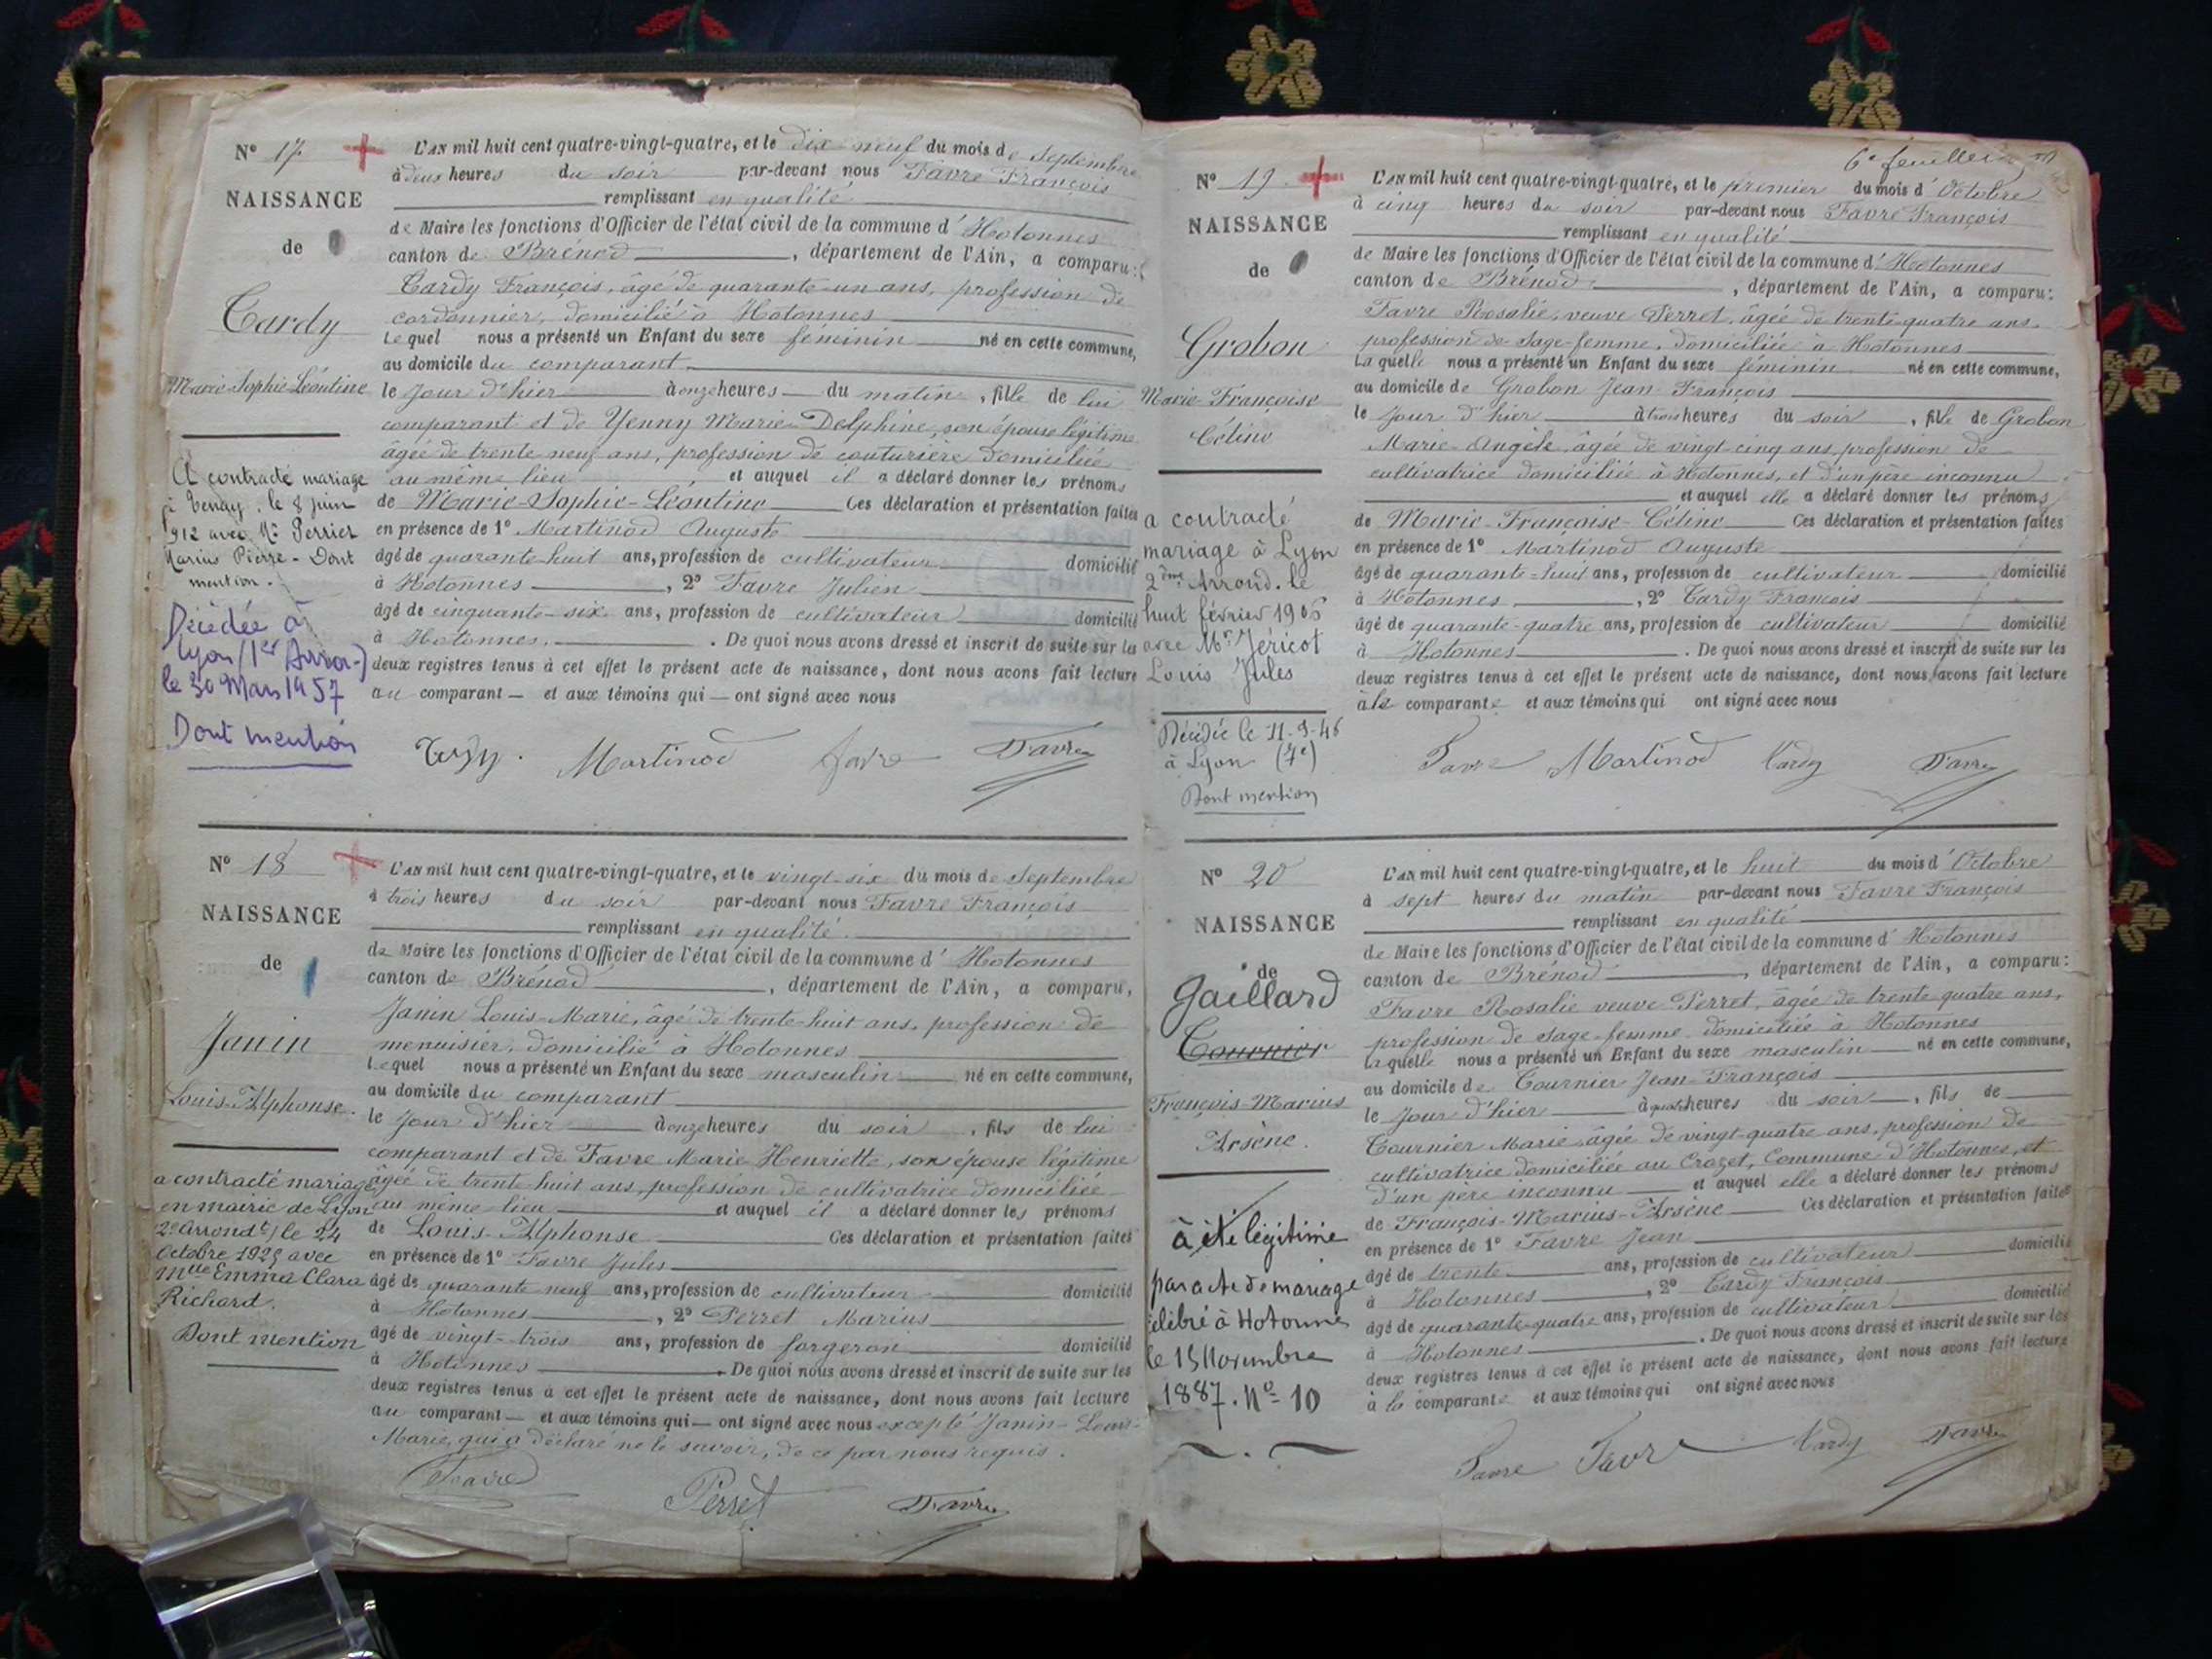 N° 17
NAISSANCE
de
Cardy
Marie-Sophie-Léontine
A contracté mariage
à Tenay, le 8 juin
1912 avec Mr Perrier
Marius Pierre - Dont
mention.
Décédée à
Lyon (1er Arron-)
le 30 Mars 1957
Dont mention
L'AN mil huit cent quatre-vingt-quatre, et le dix-neuf du mois de Septembre
à deux heures du soir par-devant nous Favre François
remplissant en qualité
de Maire les fonctions d'Officier de l'état civil de la commune d'Hotonnes
canton de Brénod, département de l'Ain, a comparu:
Cardy François, âgé de quarante-un ans, profession de
cordonnier, domicilié à Hotonnes
Lequel nous a présenté un Enfant du sexe féminin né en cette commune,
au domicile du comparant
le jour d'hier à onze heures du matin, fille de lui
comparant et de Yenny Marie-Delphine, son épouse légitime
âgée de trente-neuf ans, profession de couturière domiciliée
au même lieu et auquel il a déclaré donner les prénoms
de Marie-Sophie-Léontine Ces déclaration et présentation faites
en présence de 1° Martinod Auguste
âgé de quarante-huit ans, profession de cultivateur domicilié
à Hotonnes, 2° Favre Julien
âgé de cinquante-six ans, profession de cultivateur domicilié
à Hotonnes. De quoi nous avons dressé et inscrit de suite sur les
deux registres tenus à cet effet le présent acte de naissance, dont nous avons fait lecture
au comparant — et aux témoins qui — ont signé avec nous
Martinod Favre Favre
N° 18
NAISSANCE
de
Janin
Louis-Alphonse.
a contracté mariage
en mairie de Lyon
2e Arrondt le 24
Octobre 1925 avec
Mlle Emma Clara
Richard.
Dont mention
L'AN mil huit cent quatre-vingt-quatre, et le vingt-six du mois de Septembre
à trois heures du soir par-devant nous Favre François
remplissant en qualité
de Maire les fonctions d'Officier de l'état civil de la commune d'Hotonnes
canton de Brénod, département de l'Ain, a comparu,
Janin Louis-Marie, âgé de trente-huit ans, profession de
menuisier, domicilié à Hotonnes
Lequel nous a présenté un Enfant du sexe masculin né en cette commune,
au domicile du comparant
le jour d'hier à onze heures du soir, fils de lui
comparant et de Favre Marie Henriette, son épouse légitime
âgée de trente-huit ans, profession de cultivatrice domiciliée
au même lieu et auquel il a déclaré donner les prénoms
de Louis-Alphonse Ces déclaration et présentation faites
en présence de 1° Favre Jules
âgé de quarante-neuf ans, profession de cultivateur domicilié
à Hotonnes, 2° Perret Marius
âgé de vingt-trois ans, profession de forgeron domicilié
à Hotonnes. De quoi nous avons dressé et inscrit de suite sur les
deux registres tenus à cet effet le présent acte de naissance, dont nous avons fait lecture
au comparant — et aux témoins qui — ont signé avec nous excepté Janin-Louis-
Marie, qui a déclaré ne le savoir, de ce par nous requis.
Favre Perret Favre
6e feuillet
N° 19
NAISSANCE
de
Grobon
Marie-Françoise
Céline
a contracté
mariage à Lyon
2ème Arrond. le
huit février 1906
avec Mr Jéricot
Louis Jules
Décédée le 11-9-46
à Lyon (7e)
Dont mention
L'AN mil huit cent quatre-vingt-quatre, et le premier du mois d'Octobre
à cinq heures du soir par-devant nous Favre François
remplissant en qualité
de Maire les fonctions d'Officier de l'état civil de la commune d'Hotonnes
canton de Brénod, département de l'Ain, a comparu:
Favre Rosalie, veuve Perret, âgée de trente-quatre ans,
profession de sage-femme, domiciliée à Hotonnes
Laquelle nous a présenté un Enfant du sexe féminin né en cette commune,
au domicile de Grobon Jean-François
le jour d'hier à trois heures du soir, fille de Grobon
Marie-Angèle, âgée de vingt-cinq ans, profession de
cultivatrice domiciliée à Hotonnes, et d'un père inconnu
et auquel elle a déclaré donner les prénoms
de Marie-Françoise-Céline Ces déclaration et présentation faites
en présence de 1° Martinod Auguste
âgé de quarante-huit ans, profession de cultivateur domicilié
à Hotonnes, 2° Cardy François
âgé de quarante-quatre ans, profession de cultivateur domicilié
à Hotonnes. De quoi nous avons dressé et inscrit de suite sur les
deux registres tenus à cet effet le présent acte de naissance, dont nous avons fait lecture
à la comparante et aux témoins qui ont signé avec nous
Favre Martinod Cardy Favre
N° 20
NAISSANCE
de
Gaillard
Tournier
François-Marius
Arsène.
à été légitimé
par acte de mariage
célébré à Hotonnes
le 15 Novembre
1887. N° 10
L'AN mil huit cent quatre-vingt-quatre, et le huit du mois d'Octobre
à sept heures du matin par-devant nous Favre François
remplissant en qualité
de Maire les fonctions d'Officier de l'état civil de la commune d'Hotonnes
canton de Brénod, département de l'Ain, a comparu:
Favre Rosalie veuve Perret, âgée de trente-quatre ans,
profession de sage-femme domiciliée à Hotonnes
Laquelle nous a présenté un Enfant du sexe masculin né en cette commune,
au domicile de Tournier Jean-François
le jour d'hier à quatre heures du soir, fils de
Tournier Marie, âgée de vingt-quatre ans, profession de
cultivatrice domiciliée au Crozet, Commune d'Hotonnes, et
d'un père inconnu et auquel elle a déclaré donner les prénoms
de François-Marius-Arsène Ces déclaration et présentation faites
en présence de 1° Favre Jean
âgé de trente ans, profession de cultivateur domicilié
à Hotonnes, 2° Cardy François
âgé de quarante-quatre ans, profession de cultivateur domicilié
à Hotonnes. De quoi nous avons dressé et inscrit de suite sur les
deux registres tenus à cet effet le présent acte de naissance, dont nous avons fait lecture
à la comparante et aux témoins qui ont signé avec nous
Favre Favre Cardy Favre